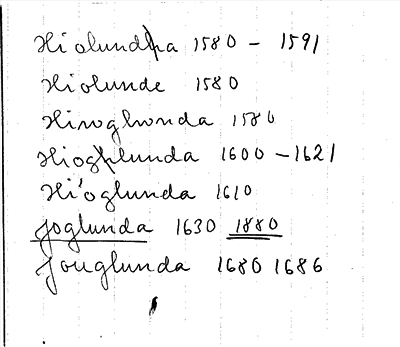 Hiolunda 1580 - 1591
Hiolunde 1580
Hiroghonda 1580
Hioglunda 1600 - 1621
Hi'oglunda 1610
Joglunda 1630 1880
Jouglunda 1680 1686